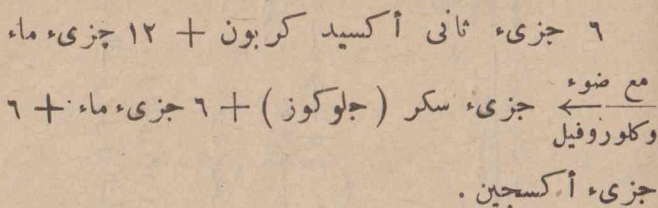 ٦ جزىء ثانى أكسيد كربون + ١٢ جزىء ماء
مع ضوء
وكلوروفيل ← جزىء سكر (جلوكوز) + ٦ جزىء ماء + ٦
جزىء أكسجين .